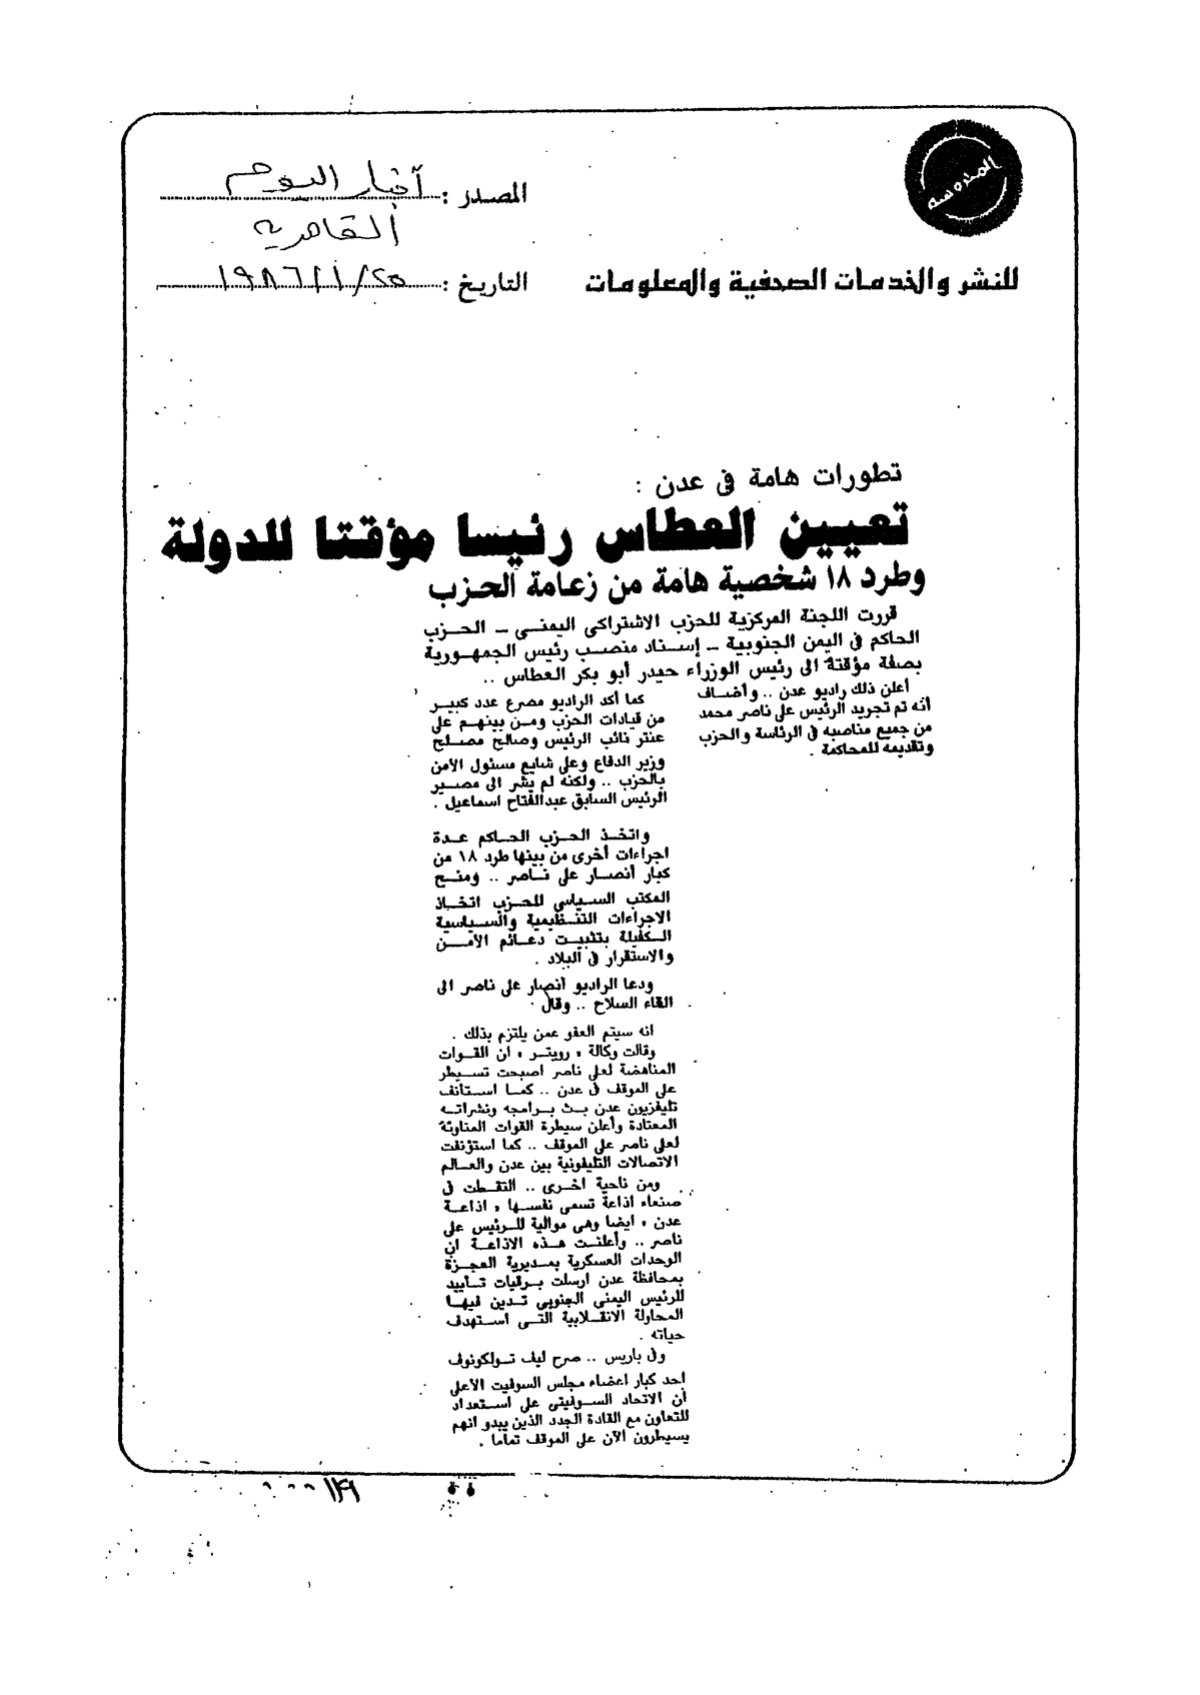 المحروسة
للنشر والخدمات الصحفية والمعلومات
المصدر : أخبار اليوم
القاهرية
التاريخ : ١٩٨٦/١/٢٥
تطورات هامة فى عدن :
تعيين العطاس رئيسا مؤقتا للدولة
وطرد ١٨ شخصية هامة من زعامة الحزب
قررت اللجنة المركزية للحزب الاشتراكى اليمنى ــ الحزب
الحاكم فى اليمن الجنوبية ــ إسناد منصب رئيس الجمهورية
بصفة مؤقتة الى رئيس الوزراء حيدر أبو بكر العطاس ..
أعلن ذلك راديو عدن .. وأضاف
أنه تم تجريد الرئيس على ناصر محمد
من جميع مناصبه فى الرئاسة والحزب
وتقديمه للمحاكمة .
كما أكد الراديو مصرع عدد كبير
من قيادات الحزب ومن بينهم على
عنتر نائب الرئيس وصالح مصلح
وزير الدفاع وعلى شايع مسئول الأمن
بالحزب .. ولكنه لم يشر الى مصير
الرئيس السابق عبدالفتاح اسماعيل .
واتخذ الحزب الحاكم عدة
اجراءات أخرى من بينها طرد ١٨ من
كبار أنصار على ناصر .. ومنح
المكتب السياسى للحزب اتخاذ
الاجراءات التنظيمية والسياسية
الكفيلة بتثبيت دعائم الأمن
والاستقرار فى البلاد .
ودعا الراديو أنصار على ناصر الى
القاء السلاح .. وقال
انه سيتم العفو عمن يلتزم بذلك .
وقالت وكالة « رويتر » ان القوات
المناهضة لعلى ناصر اصبحت تسيطر
على الموقف فى عدن .. كما استأنف
تليفزيون عدن بث برامجه ونشراته
المعتادة وأعلن سيطرة القوات المناوئة
لعلى ناصر على الموقف .. كما استؤنفت
الاتصالات التليفونية بين عدن والعالم
ومن ناحية اخرى .. التقطت فى
صنعاء اذاعة تسمى نفسها « اذاعة
عدن » ايضا وهى موالية للرئيس على
ناصر .. وأعلنت هذه الاذاعة ان
الوحدات العسكرية بمديرية العجزة
بمحافظة عدن ارسلت برقيات تأييد
للرئيس اليمنى الجنوبى تدين فيها
المحاولة الانقلابية التى استهدف
حياته .
وفى باريس .. صرح ليف تولكونوف
احد كبار اعضاء مجلس السوفيت الأعلى
أن الاتحاد السوفيتى على استعداد
للتعاون مع القادة الجدد الذين يبدو انهم
يسيطرون الآن على الموقف تماما .